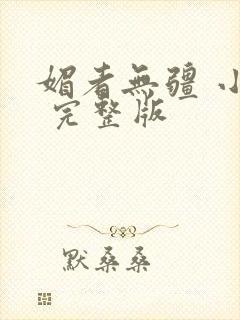 媚者無疆 小
完整版
默桑桑